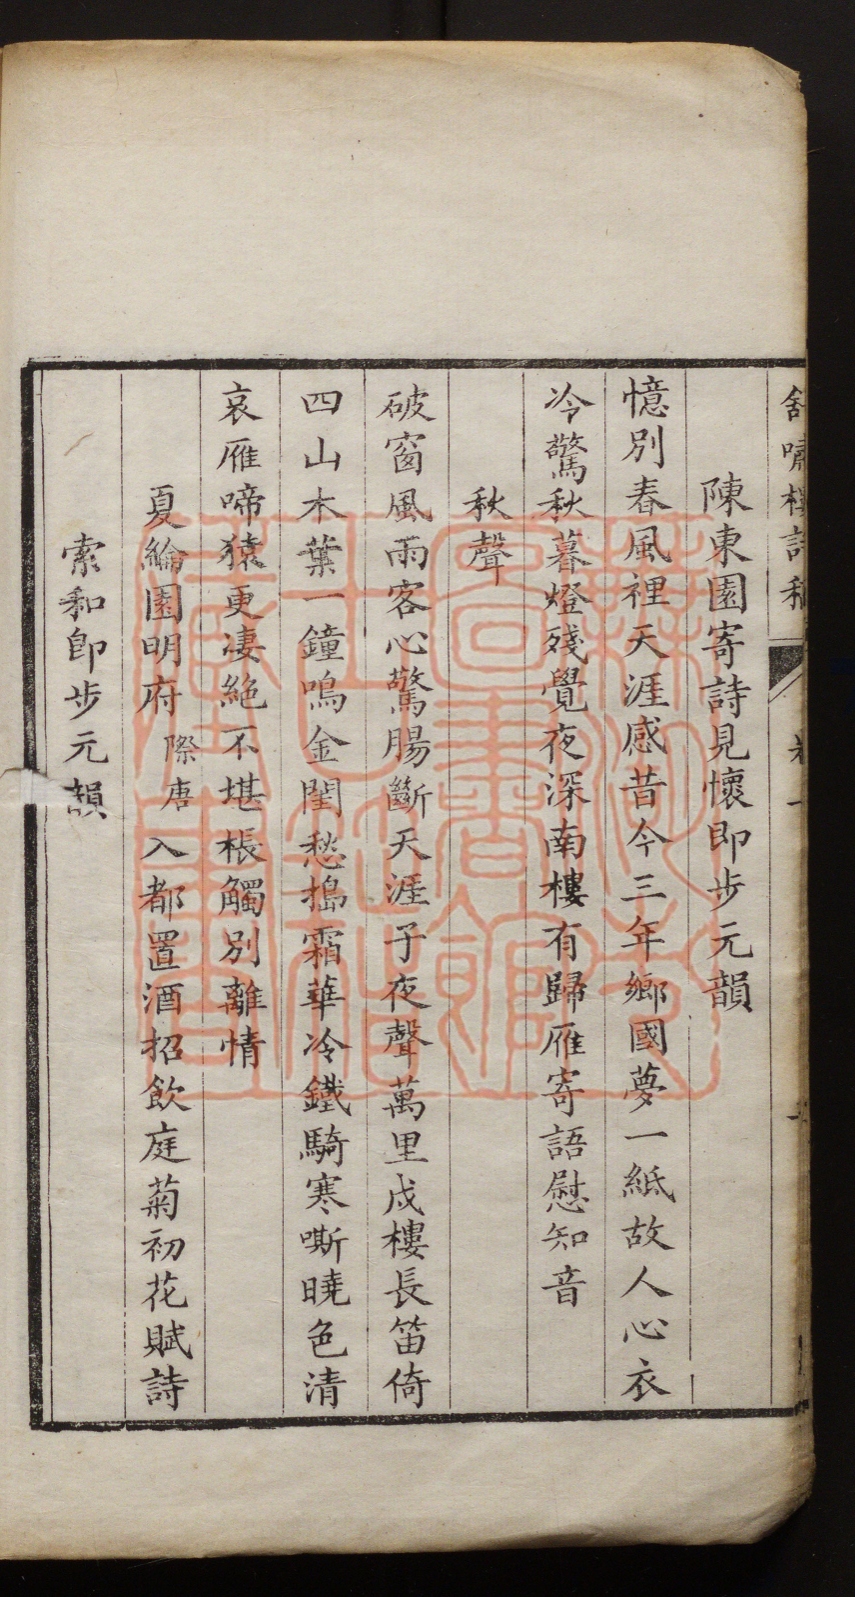 舒嘯樓詩稿
卷一
陳東園寄詩見懷即步元韻
憶別春風裡天涯感昔今三年鄉國夢一紙故人心衣
冷驚秋暮燈殘覺夜深南樓有歸雁寄語慰知音
秋聲
破窗風雨客心驚腸斷天涯子夜聲萬里戍樓長笛倚
四山木葉一鐘鳴金閨愁搗霜華冷鐵騎寒嘶曉色清
哀雁啼猿更凄絕不堪棖觸別離情
夏綸園明府際唐入都置酒招飲庭菊初花賦詩
索和即步元韻